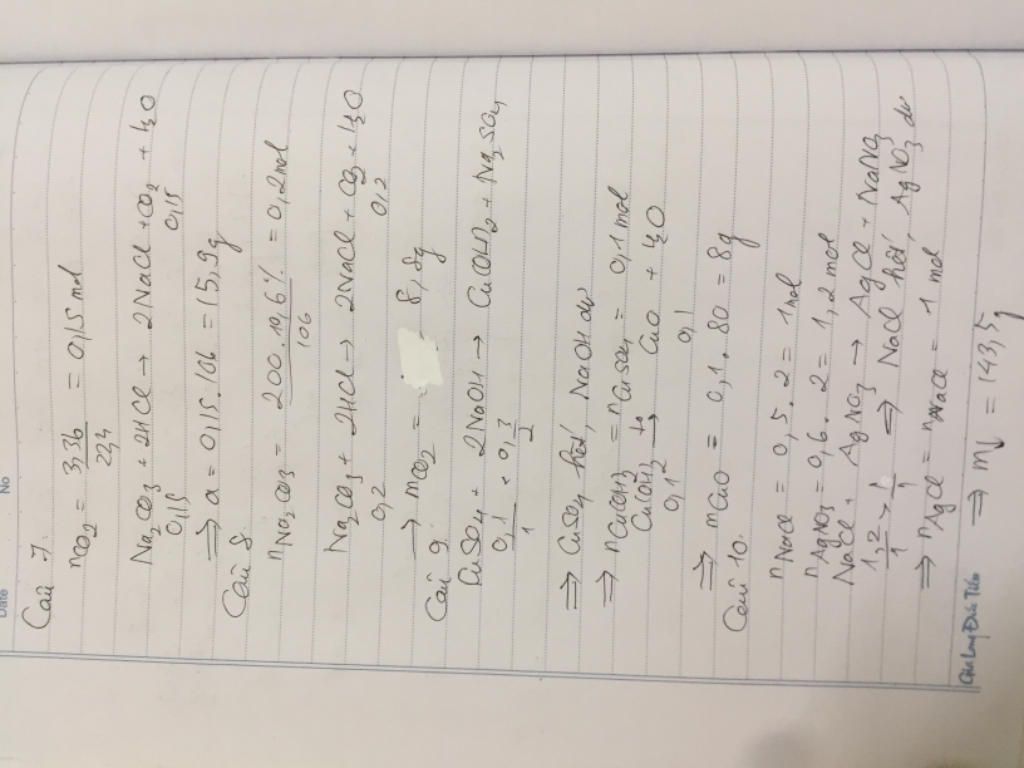 Date No
Câu 7.
nCO2 = 3,36/22,4 = 0,15 mol
Na2CO3 + 2HCl → 2NaCl + CO2 + H2O
0,15 0,15
⇒ a = 0,15.106 = 15,9g
Câu 8.
nNa2CO3 = 200.10,6%/106 = 0,2mol
Na2CO3 + 2HCl → 2NaCl + CO2 + H2O
0,2 0,2
→ mCO2 = 8,8g
Câu 9.
CuSO4 + 2NaOH → Cu(OH)2 + Na2SO4
0,1/1 < 0,3/2
⇒ CuSO4 hết, NaOH dư
⇒ nCu(OH)2 = nCuSO4 = 0,1 mol
Cu(OH)2 →to CuO + H2O
0,1 0,1
⇒ mCuO = 0,1.80 = 8g
Câu 10.
nNaCl = 0,5.2 = 1mol
nAgNO3 = 0,6.2 = 1,2mol
NaCl + AgNO3 → AgCl + NaNO3
1,2/1 > 1/1 ⇒ NaCl hết, AgNO3 dư
⇒ nAgCl = nNaCl = 1 mol
⇒ m↓ = 143,5g